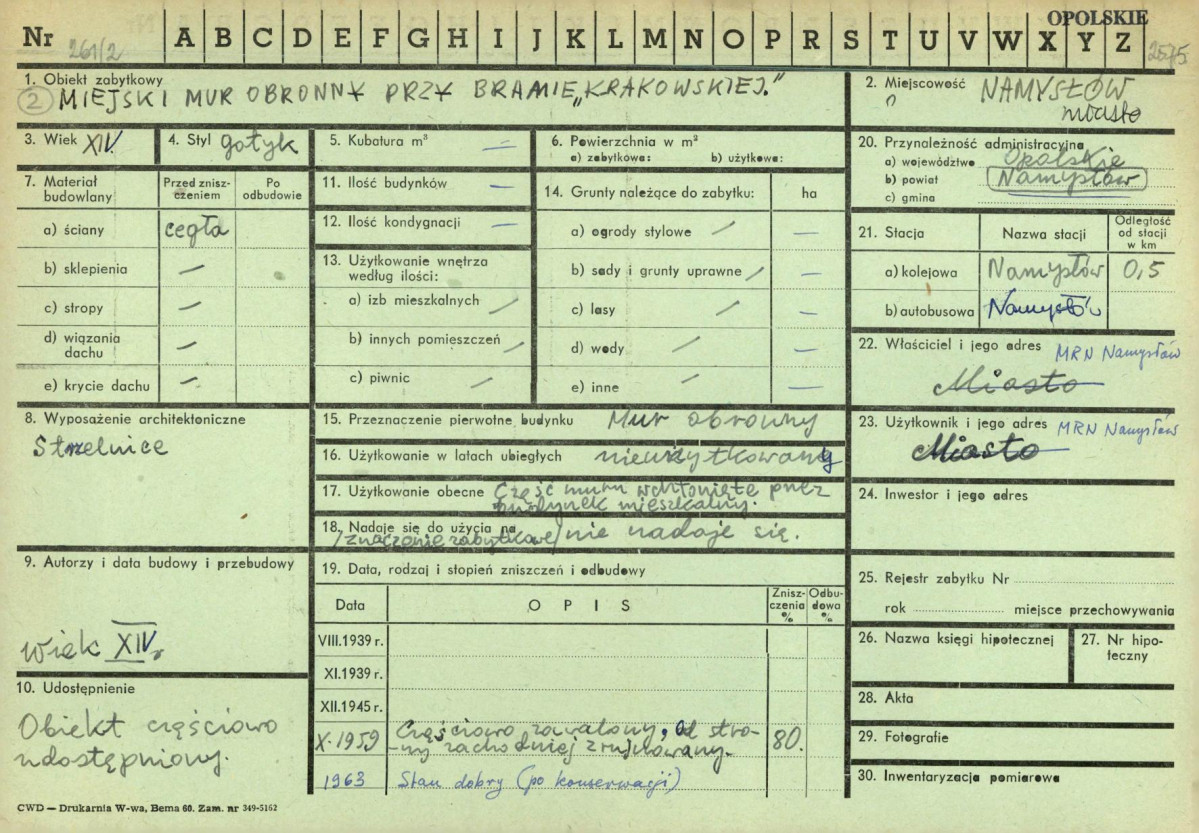 OPOLSKIE
Nr 261/2 A B C D E F G H I J K L M N O P R S T U V W X Y Z 2575
1. Obiekt zabytkowy
2 MIEJSKI MUR OBRONNY PRZY BRAMIE „KRAKOWSKIEJ."
2. Miejscowość NAMYSŁÓW
miasto
3. Wiek XIV.
4. Styl gotyk
5. Kubatura m³ —
6. Powierzchnia w m²
a) zabytkowa: b) użytkowa:
7. Materiał budowlany
Przed zniszczeniem
Po odbudowie
a) ściany cegła
b) sklepienia —
c) stropy —
d) wiązania dachu —
e) krycie dachu —
8. Wyposażenie architektoniczne
Strzelnice
9. Autorzy i data budowy i przebudowy
wiek XIV.
10. Udostępnienie
Obiekt częściowo
udostępniony.
11. Ilość budynków —
12. Ilość kondygnacji —
13. Użytkowanie wnętrza
według ilości:
a) izb mieszkalnych /
b) innych pomieszczeń /
c) piwnic /
14. Grunty należące do zabytku: ha
a) ogrody stylowe / —
b) sady i grunty uprawne / —
c) lasy / —
d) wody / —
e) inne / —
15. Przeznaczenie pierwotne budynku Mur obronny
16. Użytkowanie w latach ubiegłych nieużytkowany
17. Użytkowanie obecne Część muru wchłonięte przez
budynek mieszkalny.
18. Nadaje się do użycia na nie nadaje się.
/znaczenie zabytkowe/
19. Data, rodzaj i stopień zniszczeń i odbudowy
Data OPIS Zniszczenia % Odbudowa %
VIII.1939 r.
XI.1939 r.
XII.1945 r.
X.1959 Częściowo zawalony, od stro-
-ny zachodniej zrujnowany. 80.
1963 Stan dobry (po konserwacji)
20. Przynależność administracyjna
a) województwo Opolskie
b) powiat Namysłów
c) gmina
21. Stacja Nazwa stacji Odległość od stacji w km
a) kolejowa Namysłów 0,5
b) autobusowa Namysłów
22. Właściciel i jego adres MRN Namysłów
Miasto
23. Użytkownik i jego adres MRN Namysłów
Miasto
24. Inwestor i jego adres
25. Rejestr zabytku Nr
rok miejsce przechowywania
26. Nazwa księgi hipotecznej
27. Nr hipoteczny
28. Akta
29. Fotografie
30. Inwentaryzacja pomiarowa
CWD — Drukarnia W-wa, Bema 60. Zam. nr 349-5162